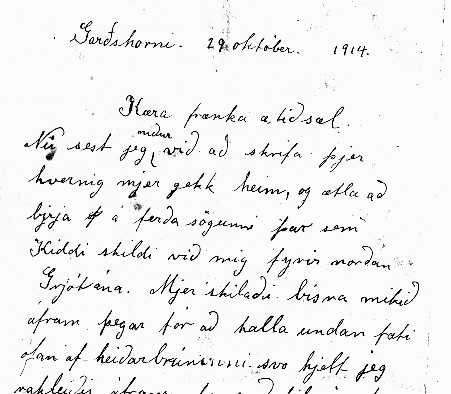 Garðshorni. 29 október. 1914.
Kæra frænka ætíð sæl.
Nú sest jeg niður við að skrifa þjer
hvernig mjer gekk heim, og ætla að
birja á ferða sögunni þar sem
Kiddi skildi við mig fyrir norðan
Grjótána. Mjer skilaði bísna mikið
áfram þegar fór að halla undan fæti
ofan af heiðarbrúninni svo hjelt jeg
áfram